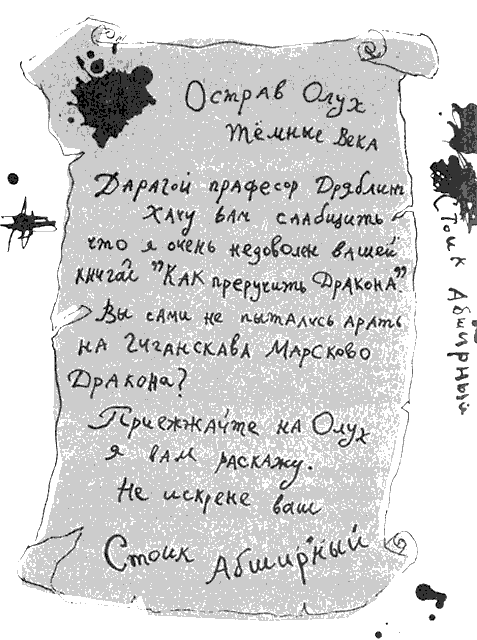 Острав Олух
тёмные века
Дарагой прафесор Дряблинг
Хачу вам слабщить
что я очень недоволен вашей
книгай "Как преручить Дракона"
Вы сами не пытались арать
на Гиганскава Марсково
Дракона?
Приежжайте на Олух
я вам раскажу.
Не искрене ваш
Стоик Абширный
Стоик Абширный